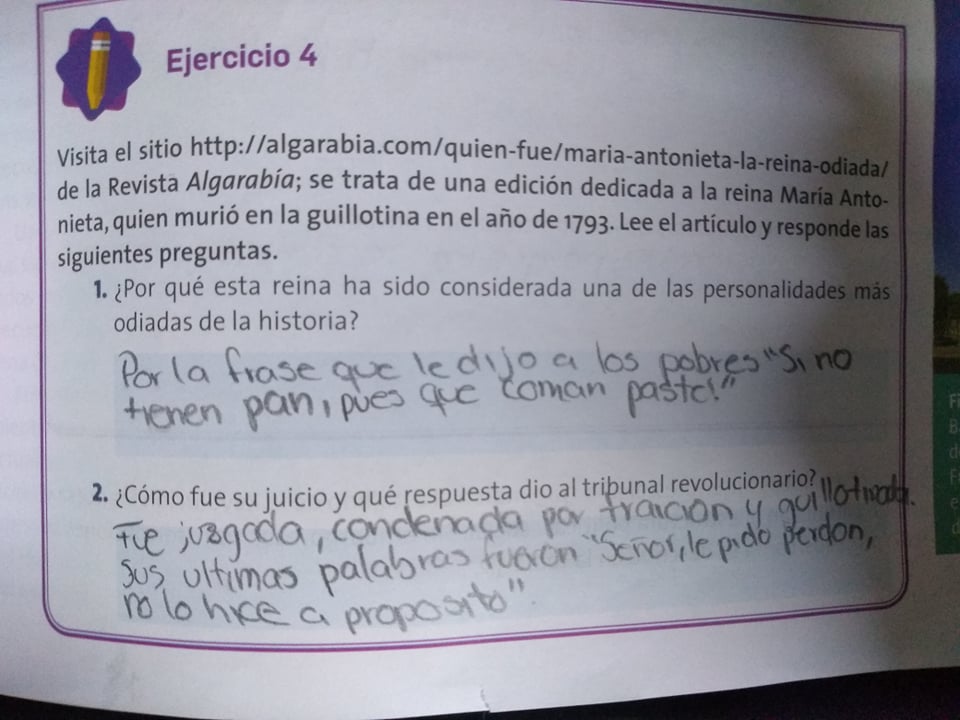 Ejercicio 4
Visita el sitio http://algarabia.com/quien-fue/maria-antonieta-la-reina-odiada/
de la Revista Algarabía; se trata de una edición dedicada a la reina María Anto-
nieta, quien murió en la guillotina en el año de 1793. Lee el artículo y responde las
siguientes preguntas.
1. ¿Por qué esta reina ha sido considerada una de las personalidades más
odiadas de la historia?
Por la frase que le dijo a los pobres "Si no
tienen pan, pues que coman pastel"
2. ¿Cómo fue su juicio y qué respuesta dio al tribunal revolucionario?
Fue juzgada, condenada por traicion y guillotinada.
Sus ultimas palabras fueron "Señor, le pido perdon,
no lo hice a proposito".